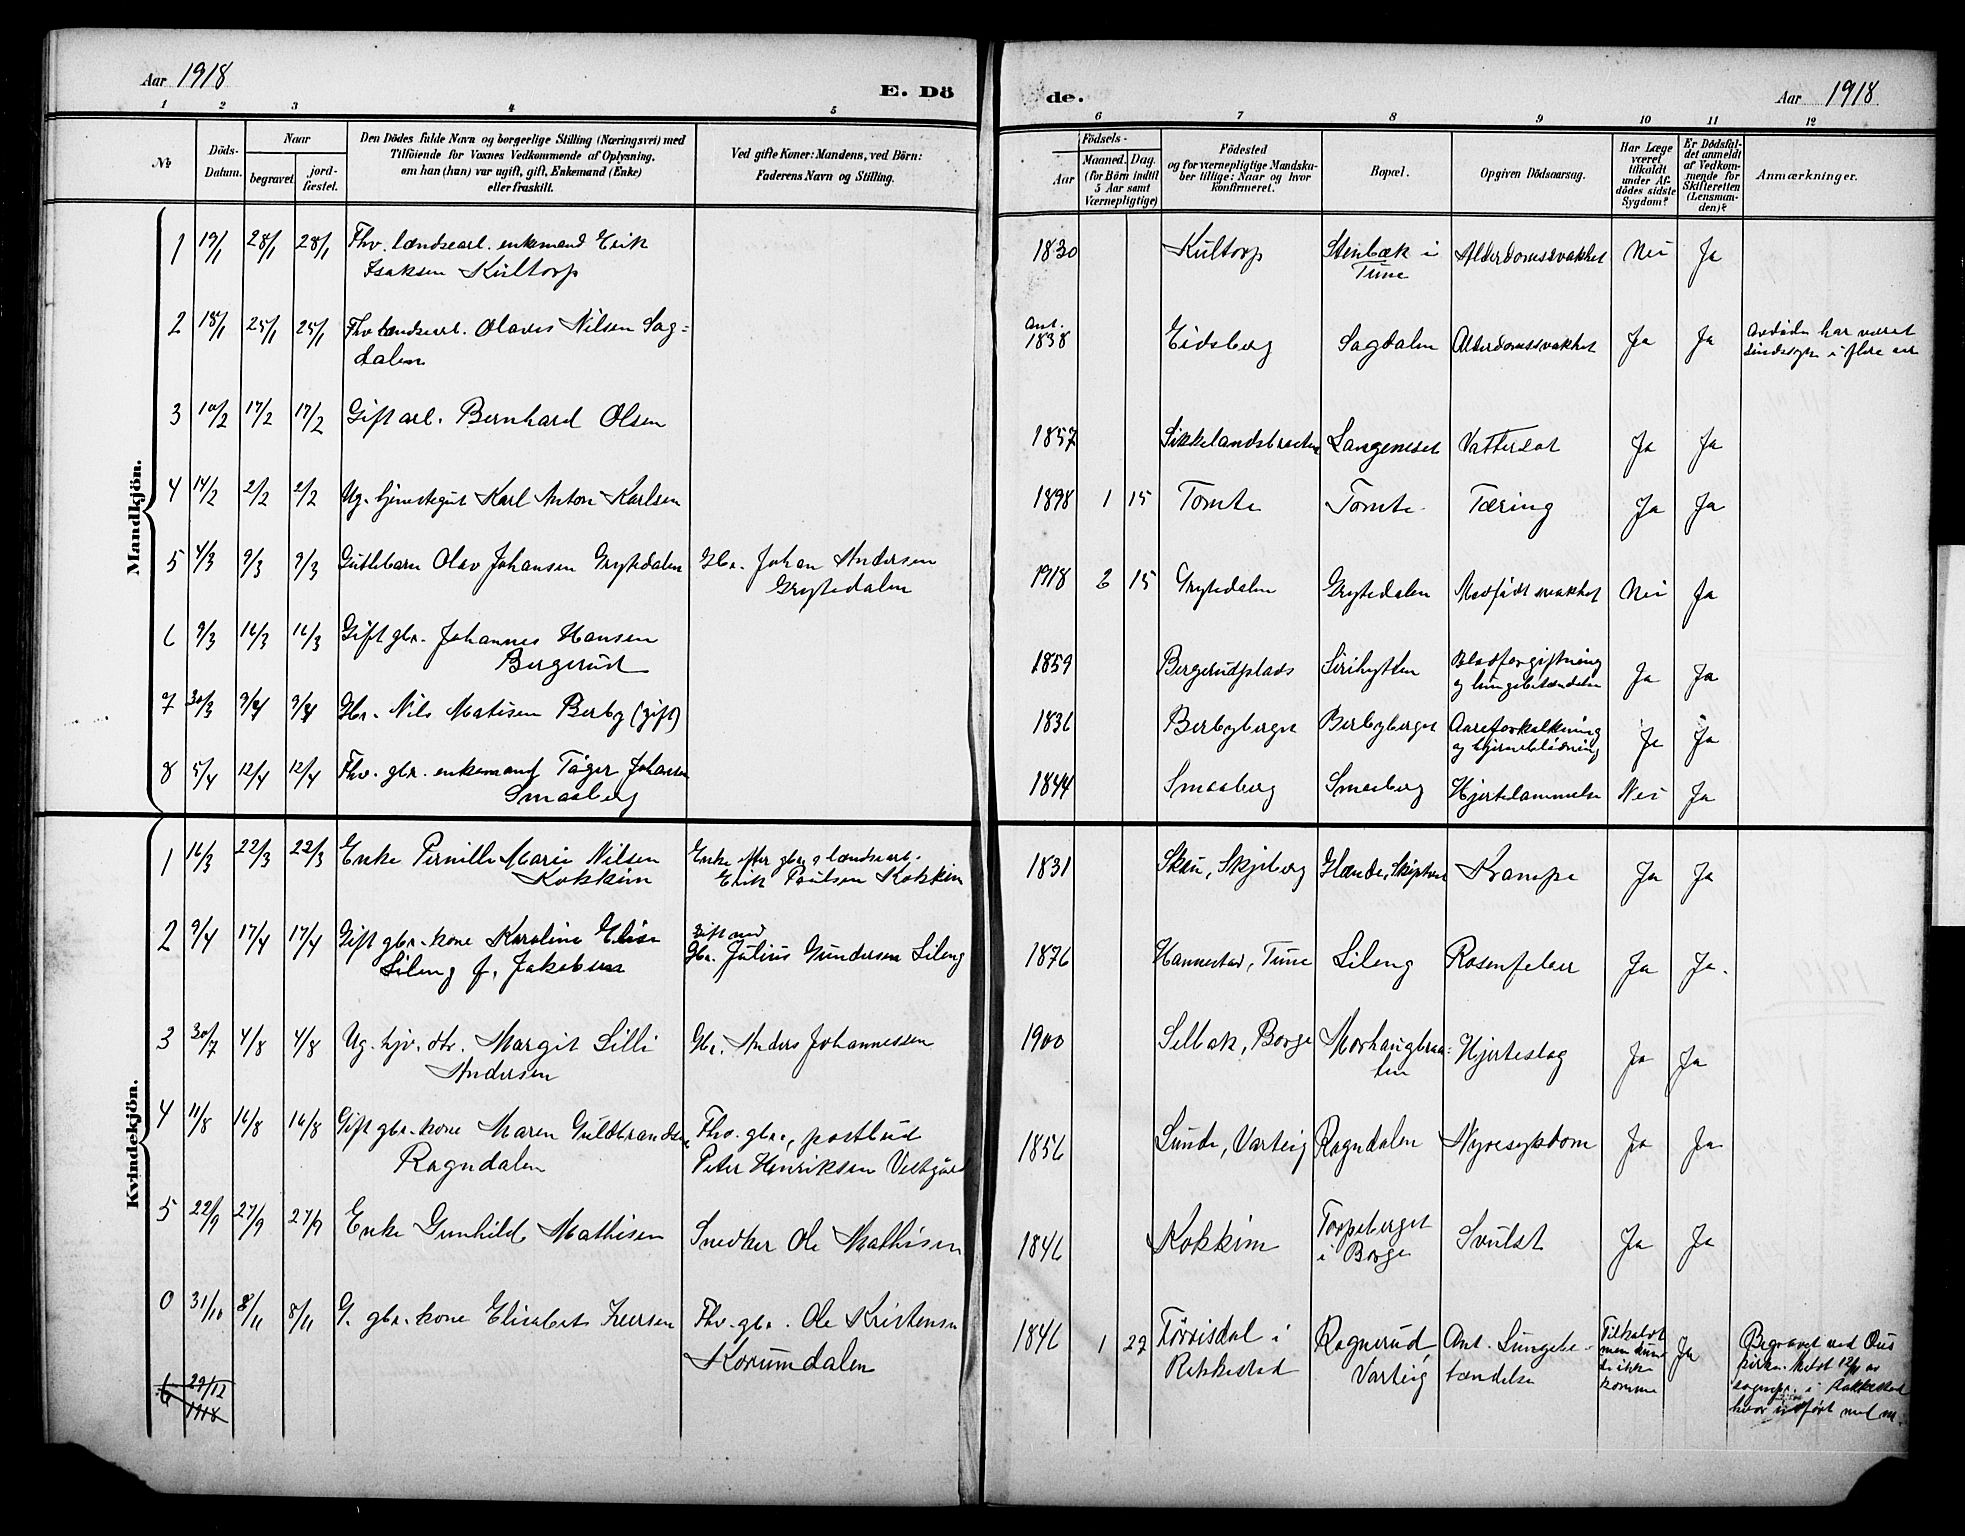 Aar 1918
E. Dö
de.
Aar 1918
1 2 3 4 5 6 7 8 9 10 11 12
No
Döds-
Datum.
Naar
begravet.
jord-
fæstet.
Den Dödes fulde Navn og borgerlige Stilling (Næringsvei) med
Tilföiende for Voxnes Vedkommende af Oplysning.
om han (hun) var ugift, gift, Enkemand (Enke)
eller fraskilt.
Ved gifte Koner: Mandens, ved Börn:
Faderens Navn og Stilling.
Födsels-
Aar
Maaned. Dag.
(for Börn indtil
5 Aar samt
Værnepligtige)
Födested
og for værnepligtige Mandska-
ber tillige: Naar og hvor
konfirmeret.
Bopæl.
Opgiven Dödsaarsag.
Har Læge
været
tilkaldt
under Af-
dödes sidste
Sygdom?
Er Dödsfal-
det anmeldt
af Vedkom-
mende for
Skifteretten
(Lensman-
den)?
Anmærkninger.
Mandkjön.
1 19/1 28/1 28/1 Fhv. lændsearb. enkemand Erik
Isaksen Kultorp
1830 Kultorp Stenbæk i
Tune
Alderdomssvakhet Nei Ja
2 18/1 25/1 25/1 Fhv. lændsearb. Olaves Nilsen Sag=
dalen
ant.
1838 Eidsberg Sagdalen Alderdomssvakhet Ja Ja
Avdøde har været
sindssyk i flere aar
3 10/2 17/2 17/2 Gift arb. Bernhard Olsen
1857 Sikkelandsbraaten Langeneset Vattersot Ja Ja
4 14/2 2/2 2/2 Ug. tjenestegut Karl Anton Karlsen
1898 1 15 Tomte Tomte Tæring Ja Ja
5 4/3 9/3 9/3 Guttebarn Olav Johansen Grytedalen Gbr. Johan Andersen
Grytedalen
1918 2 15 Grytedalen Grytedalen Medfødt svakhet Nei Ja
6 9/3 16/3 16/3 Gift gbr. Johannes Hansen
Bergerud
1859 Bergerudplads Sirihytten Blodforgiftning
og lungebetændelse
Ja Ja
7 30/3 9/4 9/4 Gbr. Nils Matisen Berby (gift)
1836 Berbyberget Berbyberget Aareforkalkning
og hjerneblødning
Ja Ja
8 5/4 12/4 12/4 Fhv. gbr. enkemand Tøger Johansen
Smaaberg
1844 Smaaberg Smaaberg Hjertelammelse Nei Ja
Kvindekjön.
1 16/3 22/3 22/3 Enke Pernille Marie Nilsen
Kokkim
Enke efter gbr. og lændsearb.
Erik Paulsen Kokkim
1831 Skau, Skjeberg Glende, Skiptvet Krampe Ja Ja
2 9/4 17/4 17/4 Gift gbr. kone Karoline Elise
Lileng f. Jakobsen
Gift med
Gbr. Julius Gundersen Lileng
1876 Hannestad, Tune Lileng Rosenfeber Ja Ja.
3 30/7 4/8 4/8 Ug. hjv. dtr. Margit Lilli
Andersen
Gbr. Anders Johannessen
1900 Selbak, Borge Morhaugbraa=
ten
Hjerteslag Ja Ja
4 11/8 16/8 16/8 Gift gbr. kone Maren Guldbrandsen
Ragndalen
Fhv. gbr., postbud
Peter Henriksen Vestgård
1856 Lunde, Varteig Ragndalen Nyresykdom Ja Ja
5 22/9 27/9 27/9 Enke Gunhild Mathisen Snedker Ole Mathisen
1846 Kokkim Torpeberget
i Borge
Svulst Ja Ja
0 31/10 8/11 8/11 G. gbr. kone Elisabet Iversen Fhv. gbr. Ole Kristensen
Korumdalen
1846 1 27 Tørrisdal i
Rakkestad
Ragnerud,
Varteig
Ant. Lungebe-
tændelse
Tilkaldt
men kun-
de ikke
komme
Ja
Begravet ved Øus
kirke. Meldt 12/11 av
sognepr. i Rakkestad
hvor indført med nr.
6 29/12
1918